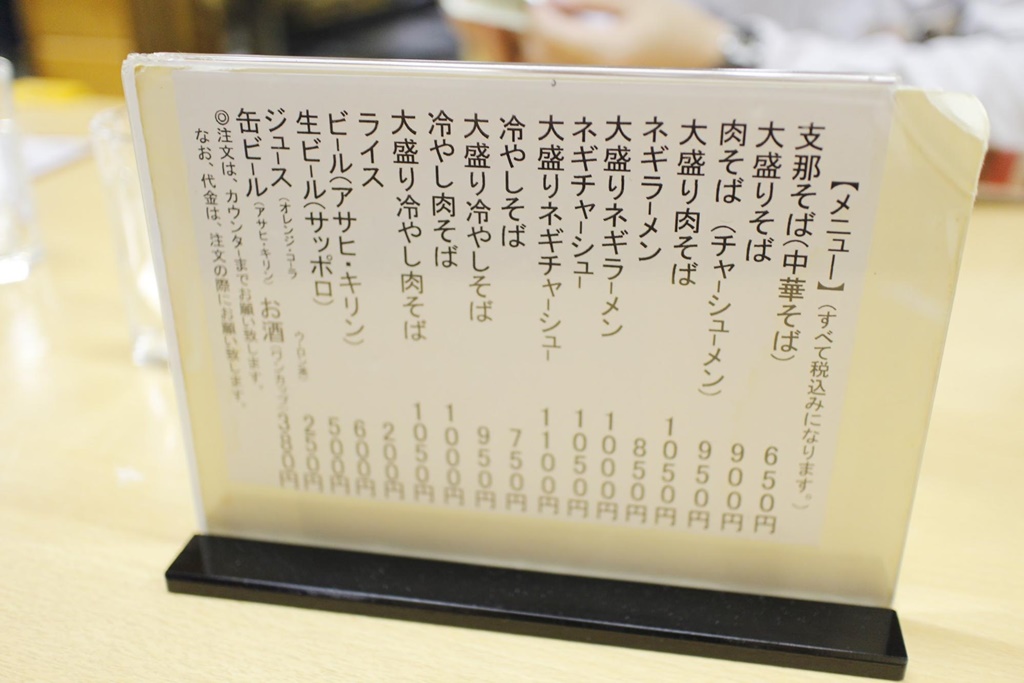 【メニュー】(すべて税込みになります。)
支那そば(中華そば) 650円
大盛りそば 900円
肉そば(チャーシューメン) 950円
大盛り肉そば 1050円
ネギラーメン 850円
大盛りネギラーメン 1000円
ネギチャーシュー 1050円
大盛りネギチャーシュー 1100円
冷やしそば 750円
大盛り冷やしそば 950円
冷やし肉そば 1000円
大盛り冷やし肉そば 1050円
ライス 200円
ビール(アサヒ・キリン) 600円
生ビール(サッポロ) 500円
ジュース(オレンジ・コーラ ウーロン茶) 250円
缶ビール(アサヒ・キリン) お酒(ワンカップ) 380円
◎注文は、カウンターまでお願い致します。
なお、代金は、注文の際にお願い致します。